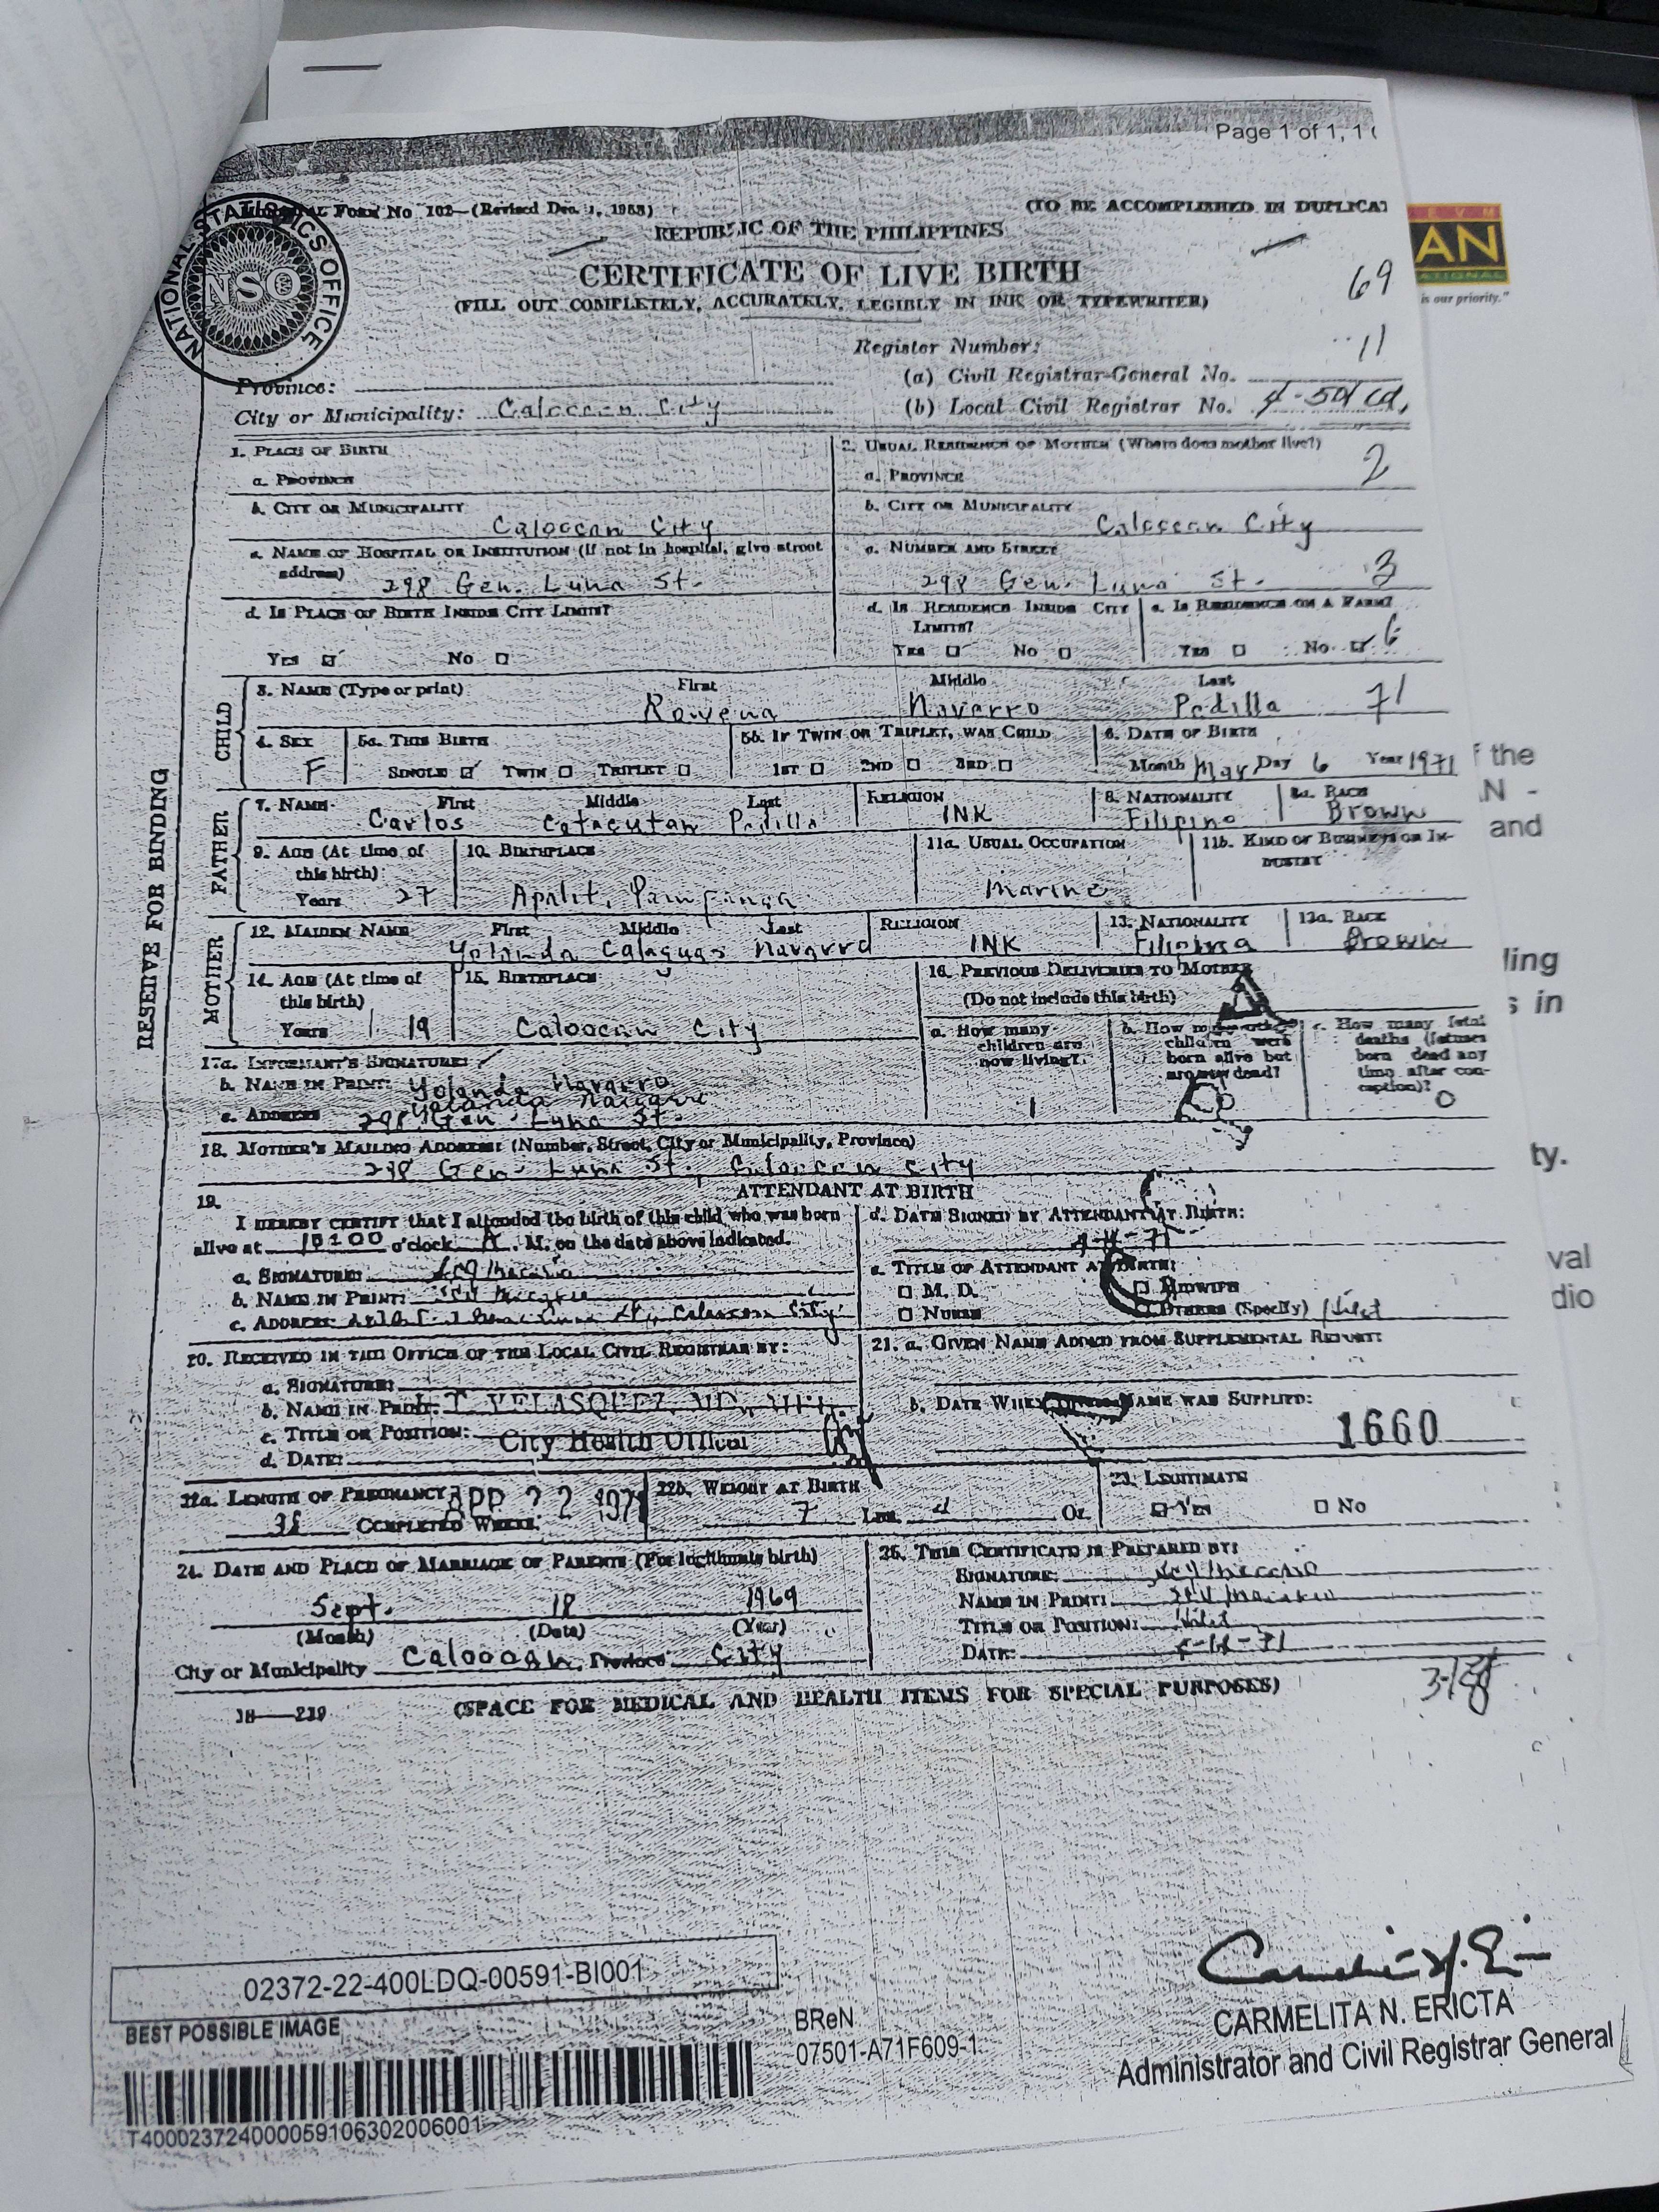 Page 1 of 1, 1
Form No 102—(Revised Dec. 1, 1958)
(TO BE ACCOMPLISHED IN DUPLICA
NATIONAL STATISTICS OFFICE
NSO
REPUBLIC OF THE PHILIPPINES
CERTIFICATE OF LIVE BIRTH
(FILL OUT COMPLETELY, ACCURATELY, LEGIBLY IN INK OR TYPEWRITER)
69
AN
is our priority."
Register Number:
11
Province:
(a) Civil Registrar-General No.
City or Municipality: Caloocan City
(b) Local Civil Registrar No.
1. PLACE OF BIRTH
2. USUAL RESIDENCE OF MOTHER (Where does mother live?)
2
a. PROVINCE
a. PROVINCE
b. CITY OR MUNICIPALITY
Caloocan City
b. CITY OR MUNICIPALITY
Caloocan City
c. NAME OF HOSPITAL OR INSTITUTION (If not in hospital, give street address)
298 Gen. Luna St.
c. NUMBER AND STREET
298 Gen. Luna St.
3
d. IS PLACE OF BIRTH INSIDE CITY LIMITS?
YES NO
d. IS RESIDENCE INSIDE CITY LIMITS?
YES NO
e. IS RESIDENCE ON A FARM?
YES NO
6
RESERVE FOR BINDING
CHILD
3. NAME (Type or print) First Middle Last
Rowena Navarro Padilla 71
4. SEX
F
5a. THIS BIRTH
SINGLE TWIN TRIPLET
5b. IF TWIN OR TRIPLET, WAS CHILD
1ST 2ND 3RD
6. DATE OF BIRTH
Month Day 6 Year 1971
FATHER
7. NAME First Middle Last
Carlos Catacutan Padilla
RELIGION
INK
8. NATIONALITY
Filipino
8a. RACE
Brown
9. AGE (At time of this birth)
Years 27
10. BIRTHPLACE
Apalit, Pampanga
11a. USUAL OCCUPATION
Marine
11b. KIND OF BUSINESS OR INDUSTRY
MOTHER
12. MAIDEN NAME First Middle Last
Yolanda Calaguas Navarro
RELIGION
INK
13. NATIONALITY
Filipina
13a. RACE
Brown
14. AGE (At time of this birth)
Years 19
15. BIRTHPLACE
Caloocan City
16. PREVIOUS DELIVERIES TO MOTHER
(Do not include this birth)
a. How many children are now living?
1
b. How many other children were born alive but are now dead?
c. How many fetal deaths (fetuses born dead any time after conception)?
0
17a. INFORMANT'S SIGNATURE:
b. NAME IN PRINT: Yolanda Navarro
c. ADDRESS 298 Gen. Luna St.
18. MOTHER'S MAILING ADDRESS: (Number, Street, City or Municipality, Province)
298 Gen. Luna St., Caloocan City
19. ATTENDANT AT BIRTH
I HEREBY CERTIFY that I attended the birth of this child who was born
alive at 10:00 o'clock A. M. on the date above indicated.
a. SIGNATURE:
b. NAME IN PRINT:
c. ADDRESS: Caloocan City
d. DATE SIGNED BY ATTENDANT AT BIRTH:
e. TITLE OF ATTENDANT AT BIRTH:
M. D. MIDWIFE
NURSE OTHERS (Specify) Hilot
20. RECEIVED IN THE OFFICE OF THE LOCAL CIVIL REGISTRAR BY:
a. SIGNATURE:
b. NAME IN PRINT: T VELASQUEZ, MD., MPH.
c. TITLE OR POSITION: City Health Officer
d. DATE:
21. a. GIVEN NAME ADDED FROM SUPPLEMENTAL REPORT:
b. DATE WHEN GIVEN NAME WAS SUPPLIED:
1660
22a. LENGTH OF PREGNANCY
APR 22 1971
COMPLETED WEEKS
22b. WEIGHT AT BIRTH
7 Lbs. 4 Oz.
23. LEGITIMATE
YES NO
24. DATE AND PLACE OF MARRIAGE OF PARENTS (For legitimate birth)
Sept. 18 1969
(Month) (Date) (Year)
City or Municipality Caloocan Province City
25. THIS CERTIFICATE IS PREPARED BY:
SIGNATURE:
NAME IN PRINT:
TITLE OR POSITION: Hilot
DATE:
18—219
(SPACE FOR MEDICAL AND HEALTH ITEMS FOR SPECIAL PURPOSES)
f the
N -
and
ling
s in
ty.
val
dio
02372-22-400LDQ-00591-BI001
BEST POSSIBLE IMAGE
T400023724000059106302006001
BReN
07501-A71F609-1
CARMELITA N. ERICTA
Administrator and Civil Registrar General